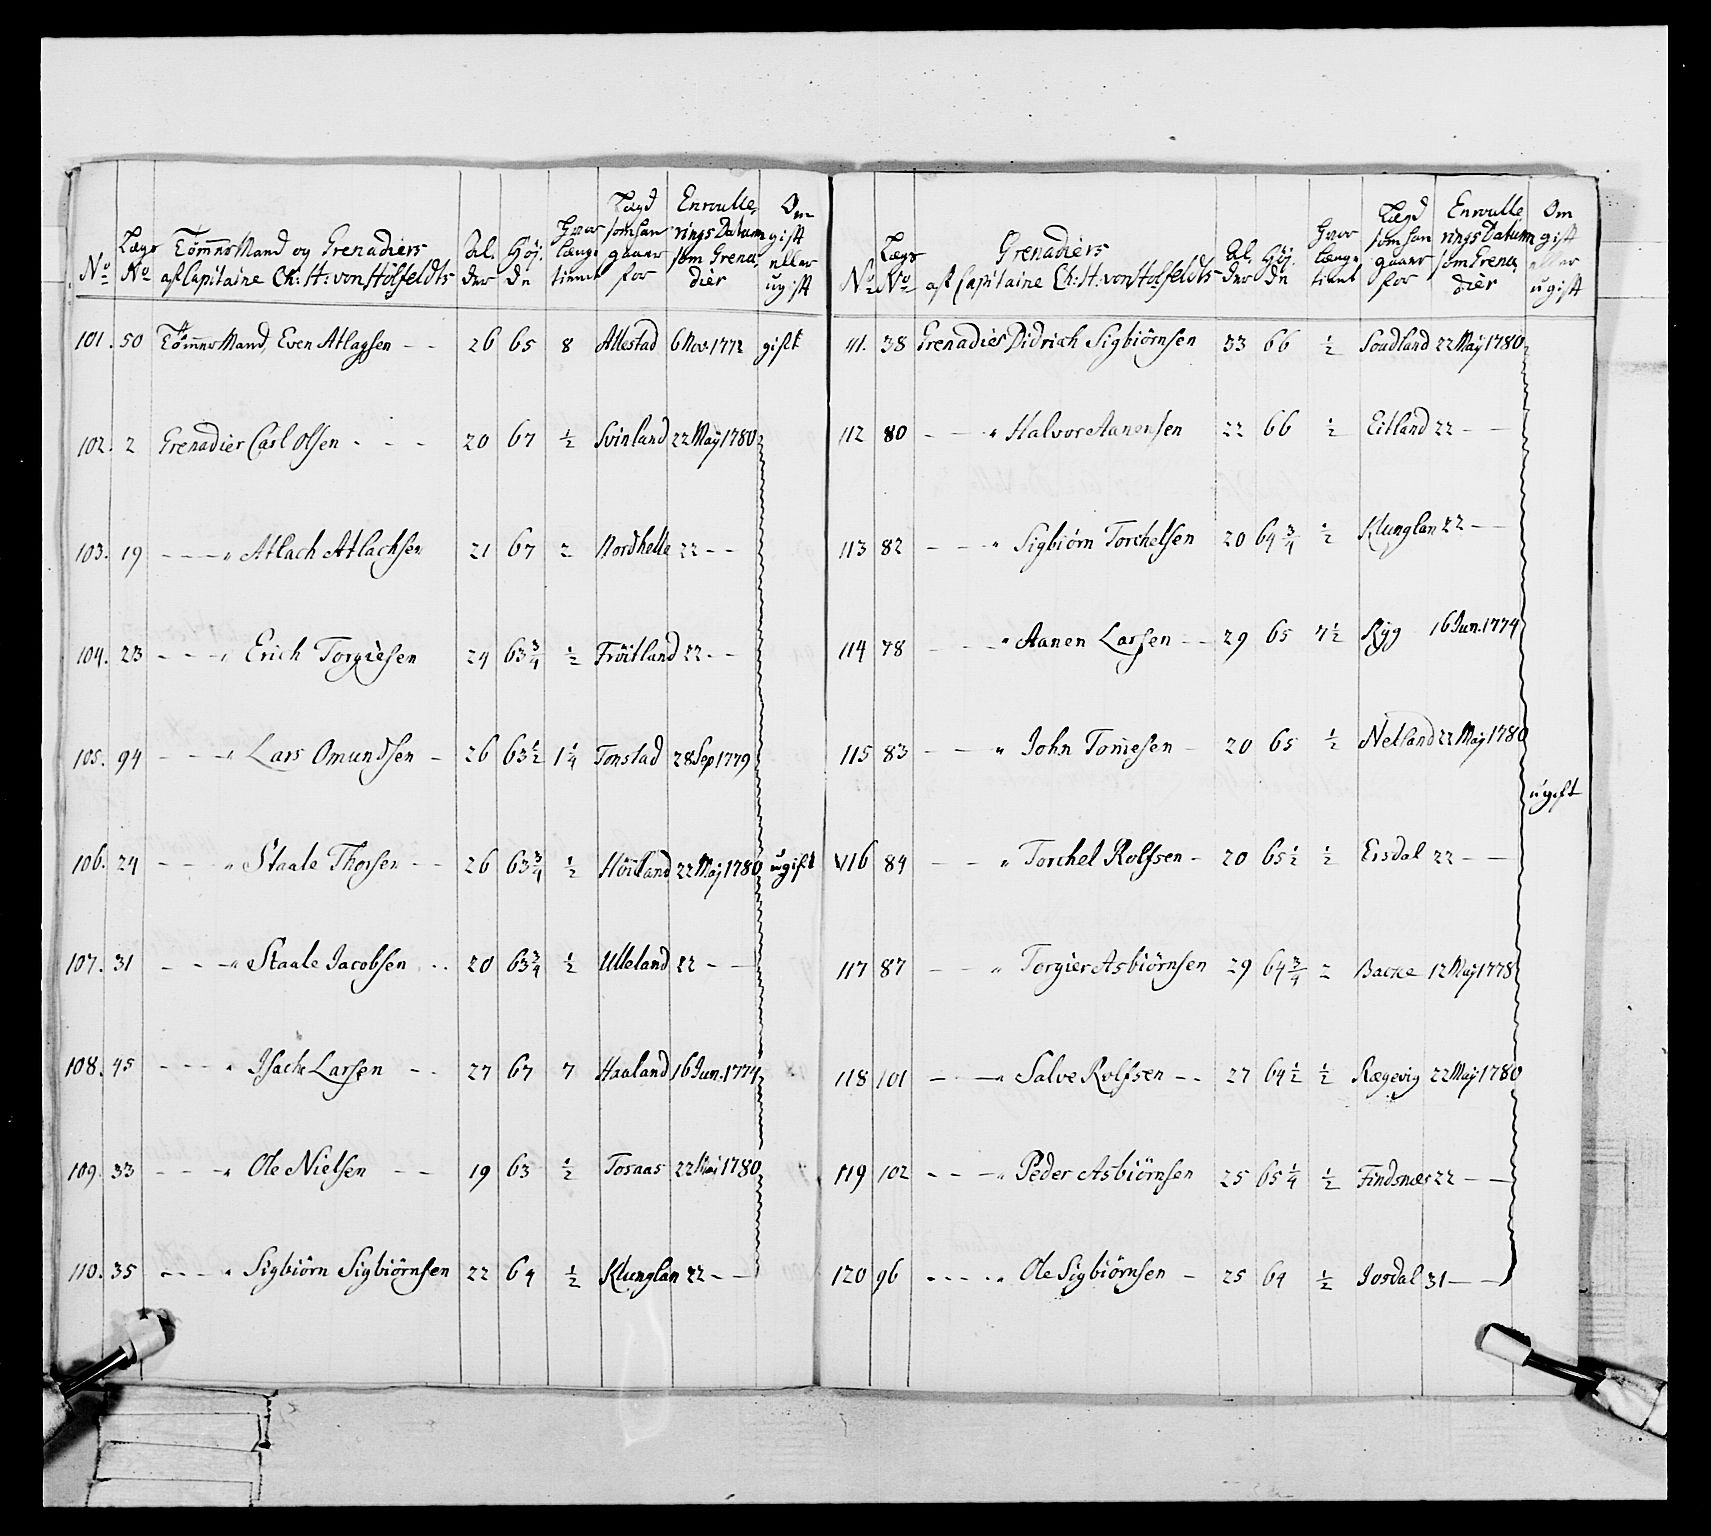 No Lægs No Tömmermand og Grenadiers af Capitaine Ch: H: von Holfeldts Alder Höjde Hvor længe tient Lægd som han gaaer for Enroullerings Datum som Grenadier Om gift eller ugift
101. 50 Tömmermand Even Atlagsen - - 26 65 8 Allestad 6 Nov. 1772 gift
102. 2 Grenadier Carl Olsen - - - 20 67 ½ Svinland 22 Maÿ 1780
103. 19 - - - " Atlach Atlachsen 21 67 2 Nordhelle 22 - -
104. 23 - - - " Erich Torgiesen 24 63¾ ½ Fröitland 22 - -
105. 94 - - - " Lars Omundsen - 26 63½ 1¼ Tonstad 28 Sep 1779
106. 24 - - " Staale Thorsen - - 26 63¾ ½ Höiland 22 Maj 1780 ugift
107. 31 - - - " Staale Jacobsen - - 20 63¾ ½ Ulleland 22 - -
108. 45 - - - " Isach Larsen - - 27 67 7 Haaland 16 Jun. 1774
109. 33 - - - " Ole Nielsen - - 19 63 ½ Tosaas 22 Mai 1780
110. 35 - - - " Sigbiörn Sigbiörnsen 22 64 ½ Klunglan 22 - -
No Lægs No Grenadiers af Capitaine Ch: H: von Holfeldts Alder Höjde Hvor længe tient Lægd som han gaaer for Enroullerings Datum som Grenadier Om gift eller ugift
111. 38 Grenadier Didrich Sigbiörnsen 33 66 ½ Soudland 22 Maÿ 1780
112 80 - - " Halvor Aanensen 22 66 ½ Eitland 22 - -
113 82 - - " Sigbiörn Torchelsen 20 64¾ ½ Klunglan 22 - -
114 78 - - " Aanen Larsen - - 29 65 7½ Rÿg 16 Jun. 1774
115 83 - - " John Tomesen - 20 65 ½ Netland 22 Maj 1780
ugift
116 84 - - " Torchel Rolfsen - 20 65½ ½ Eisdal 22 - -
117 87 - - " Torgier Asbiörnsen 29 64¾ 2 Backe 12 Maj 1778
118 101 - - " Salve Rolfsen - - 27 64½ ½ Rægevig 22 Maj 1780
119 102 - - - " Peder Asbiörnsen 25 65¼ ½ Findsnæs 22 - -
120 96 - - - " Ole Sigbiörnsen - 25 64 ½ Josdal 31 - -